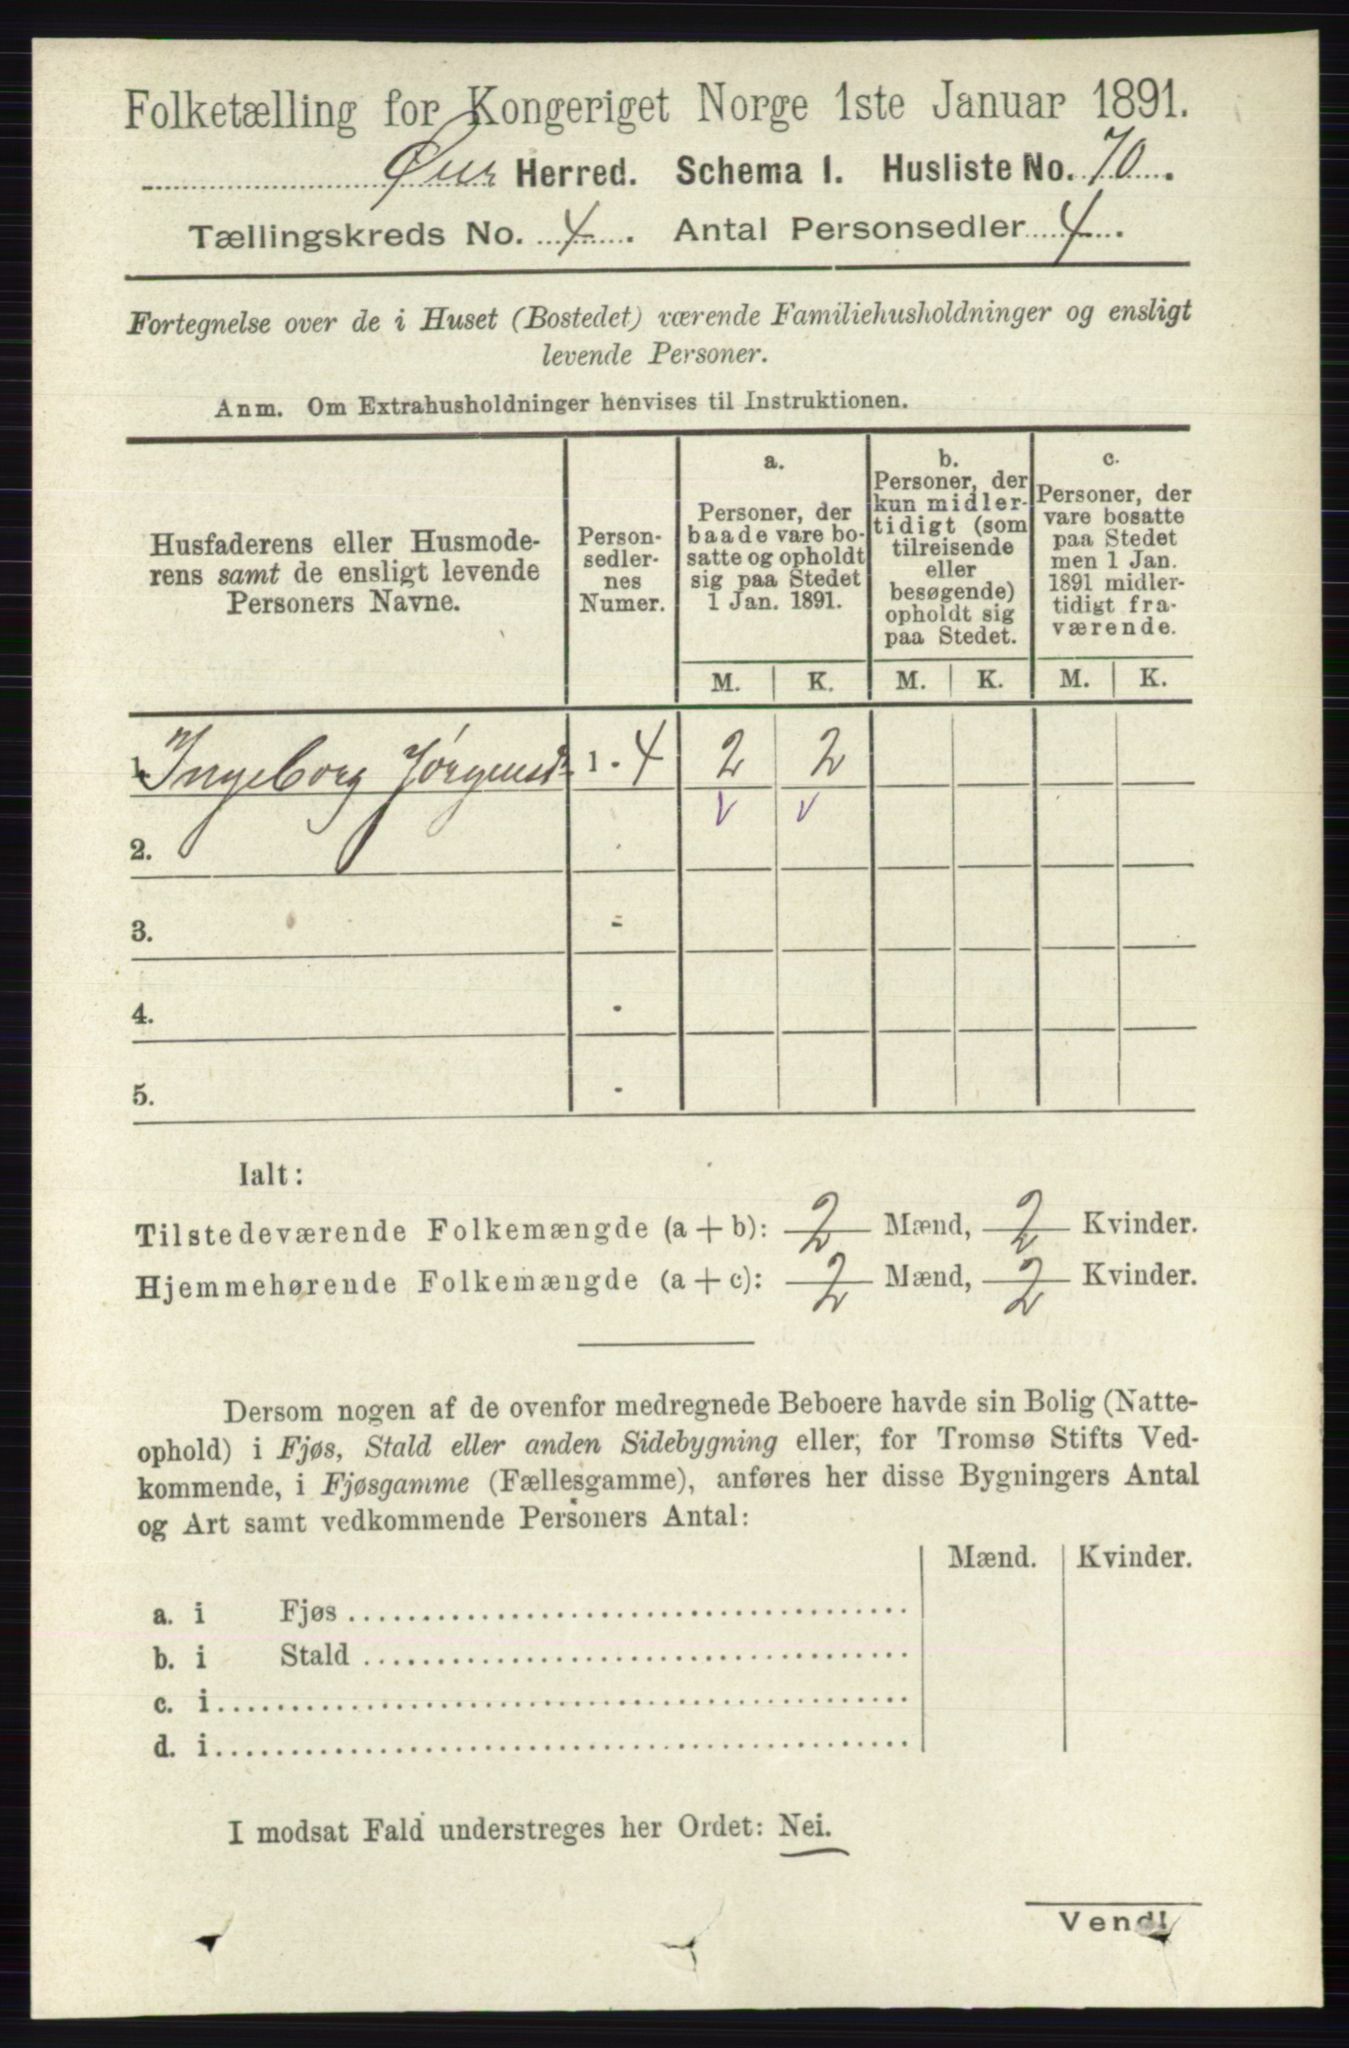 Folketælling for Kongeriget Norge 1ste Januar 1891.
Herred. Schema I. Husliste No. 70.
Tællingskreds No. 4. Antal Personsedler 4.
Fortegnelse over de i Huset (Bostedet) værende Familiehusholdninger og ensligt
levende Personer.
Anm. Om Extrahusholdninger henvises til Instruktionen.
Husfaderens eller Husmode-
rens samt de ensligt levende
Personers Navne.
Person-
sedler-
nes
Numer.
a.
Personer, der
baade vare bo-
satte og opholdt
sig paa Stedet
1 Jan. 1891.
b.
Personer, der
kun midler-
tidigt (som
tilreisende
eller
besøgende)
opholdt sig
paa Stedet.
c.
Personer, der
vare bosatte
paa Stedet
men 1 Jan.
1891 midler-
tidigt fra-
værende.
M. K. M. K. M. K.
1. Ingeborg Jørgensd. 1 - 4 2 2
2. -
3. -
4. -
5. -
Ialt:
Tilstedeværende Folkemængde (a + b): 2 Mænd, 2 Kvinder.
Hjemmehørende Folkemængde (a + c): 2 Mænd, 2 Kvinder.
Dersom nogen af de ovenfor medregnede Beboere havde sin Bolig (Natte-
ophold) i Fjøs, Stald eller anden Sidebygning eller, for Tromsø Stifts Ved-
kommende, i Fjøsgamme (Fællesgamme), anføres her disse Bygningers Antal
og Art samt vedkommende Personers Antal:
Mænd. Kvinder.
a. i Fjøs
b. i Stald
c. i
d. i
I modsat Fald understreges her Ordet: Nei.
Vend!